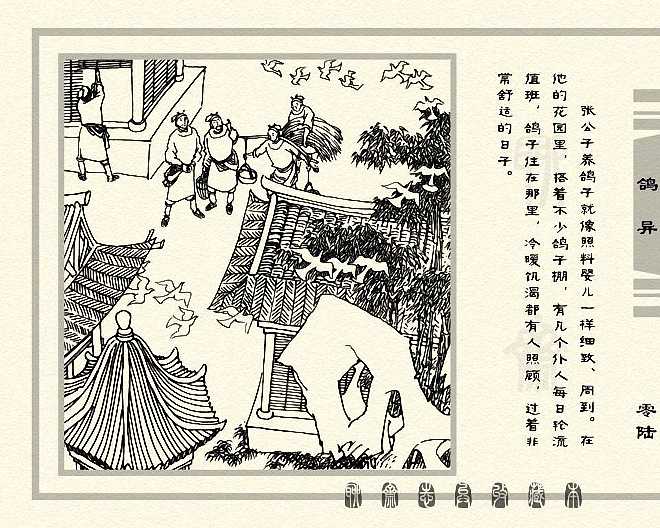 张公子养鸽子就像照料婴儿一样细致、周到。在
他的花园里，搭着不少鸽子棚，有几个仆人每日轮流
值班，鸽子住在那里，冷暖饥渴都有人照顾，过着非
常舒适的日子。
鸽异
零陆